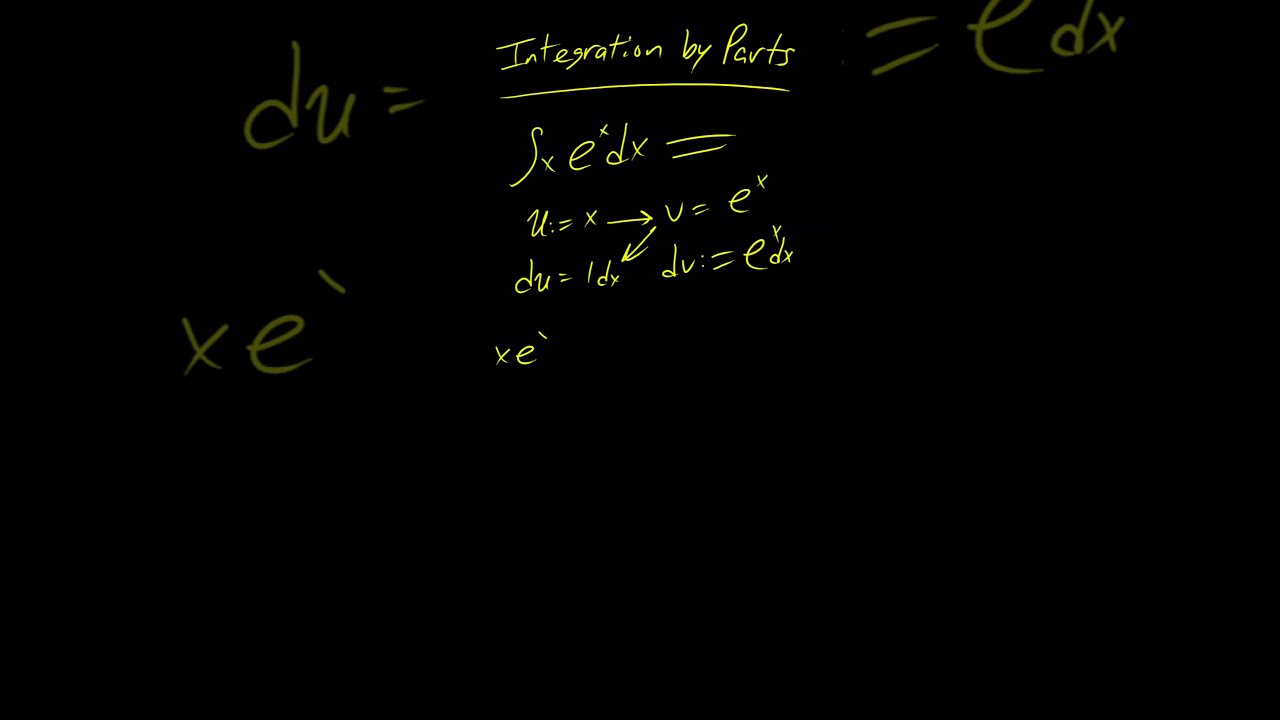 Integration by Parts
∫x eˣdx =
u:= x → v = eˣ
du = 1dx dv:= eˣdx
xe`
du =
= e dx
xe`